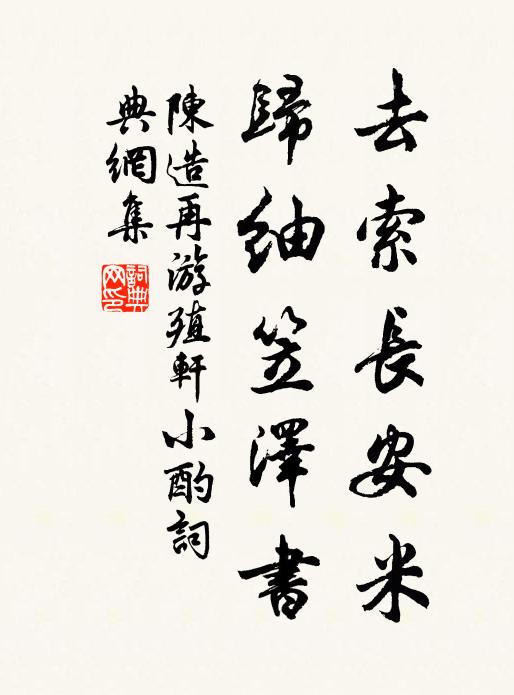 去索長安米
歸紬笠澤書
陳造再游殖軒小酌詞
典網集
詞典网印